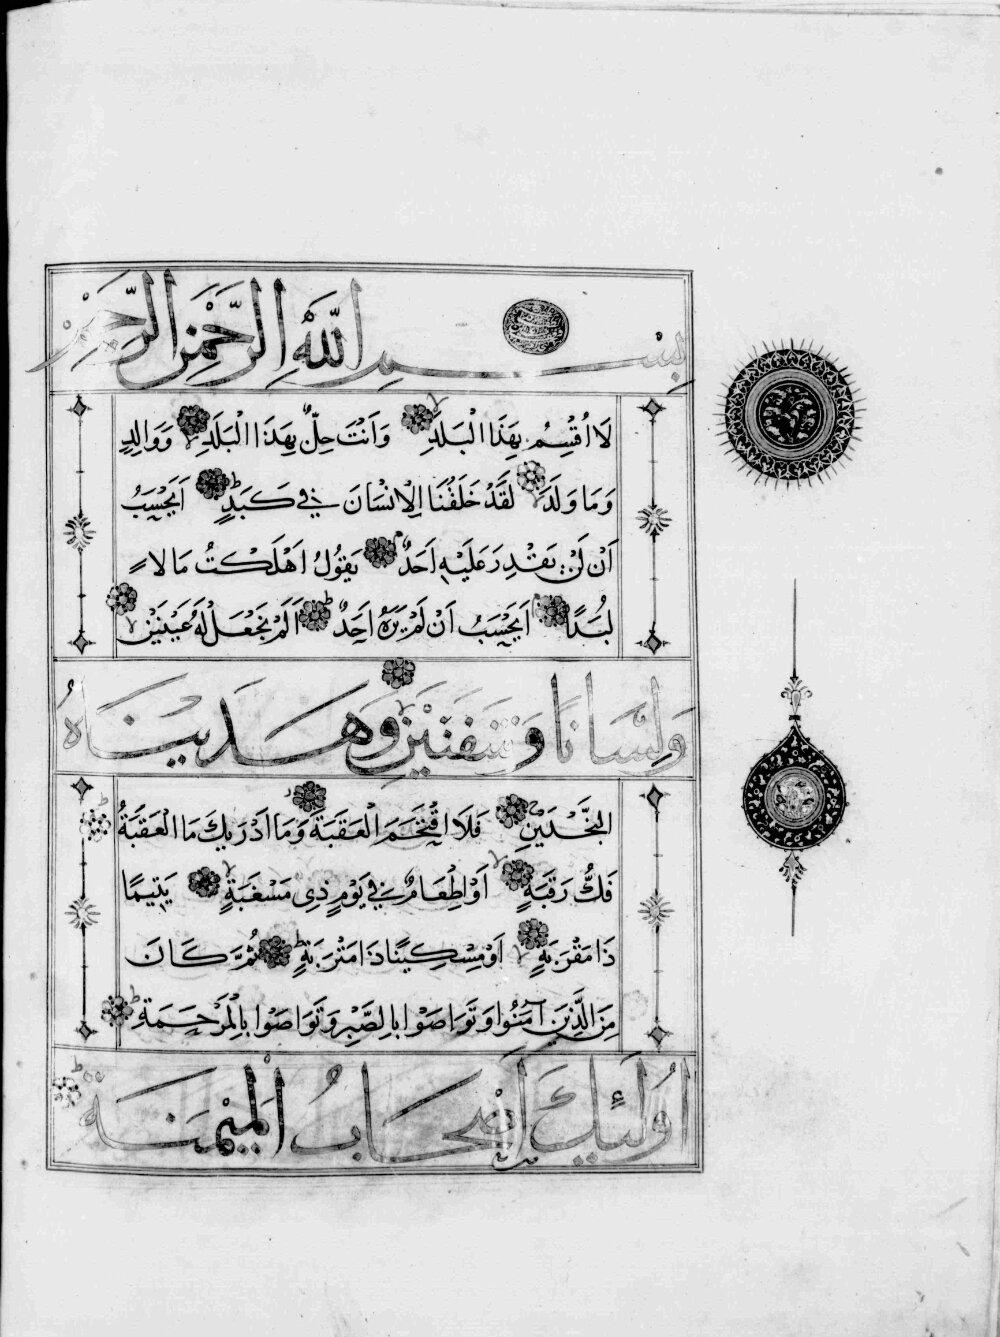 بِسْمِ اللَّهِ الرَّحْمَٰنِ الرَّحِيمِ
لَا اُقْسِمُ بِهَذَا الْبَلَدِ وَاَنْتَ حِلٌّ بِهَذَا الْبَلَدِ وَوَالِدٍ
وَمَا وَلَدَ لَقَدْ خَلَقْنَا الْاِنْسَانَ فِي كَبَدٍ اَيَحْسَبُ
اَنْ لَنْ يَقْدِرَ عَلَيْهِ اَحَدٌ يَقُولُ اَهْلَكْتُ مَالًا
لُبَدًا اَيَحْسَبُ اَنْ لَمْ يَرَهُ اَحَدٌ اَلَمْ نَجْعَلْ لَهُ عَيْنَيْنِ
وَلِسَانًا وَشَفَتَيْنِ وَهَدَيْنَاهُ
النَّجْدَيْنِ فَلَا اقْتَحَمَ الْعَقَبَةَ وَمَا اَدْرَيكَ مَا الْعَقَبَةُ
فَكُّ رَقَبَةٍ اَوْ اِطْعَامٌ فِي يَوْمٍ ذِي مَسْغَبَةٍ يَتِيمًا
ذَا مَقْرَبَةٍ اَوْ مِسْكِينًا ذَا مَتْرَبَةٍ ثُمَّ كَانَ
مِنَ الَّذِينَ آمَنُوا وَتَوَاصَوْا بِالصَّبْرِ وَتَوَاصَوْا بِالْمَرْحَمَةِ
اُولَٰئِكَ اَصْحَابُ الْمَيْمَنَةِ